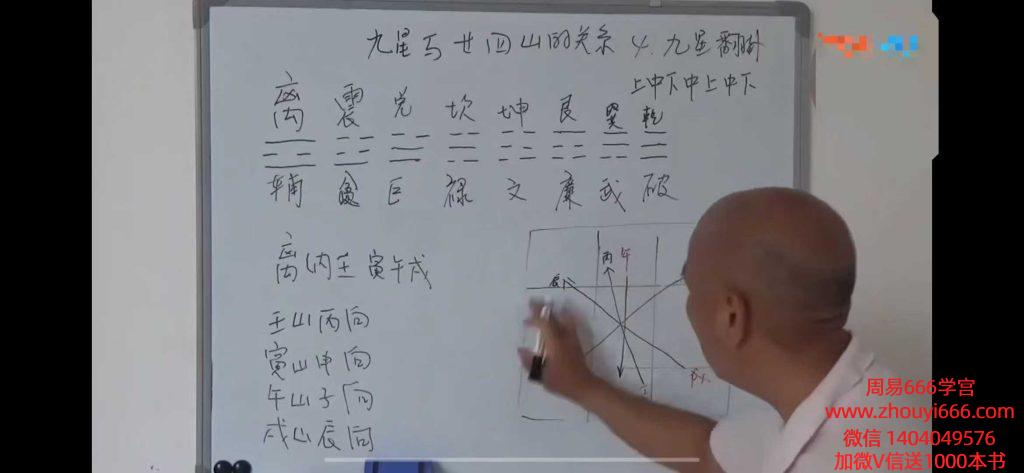 九星与廿四山的关系 4.九星翻卦
上中下中上中下
离 震 兑 坎 坤 艮 巽 乾
辅 贪 巨 禄 文 廉 武 破
离纳壬寅午戌
丙 午
辰
戌
壬山丙向
寅山申向
午山子向
戌山辰向
周易666学宫
www.zhouyi666.com
微信 1404049576
加微V信送1000本书